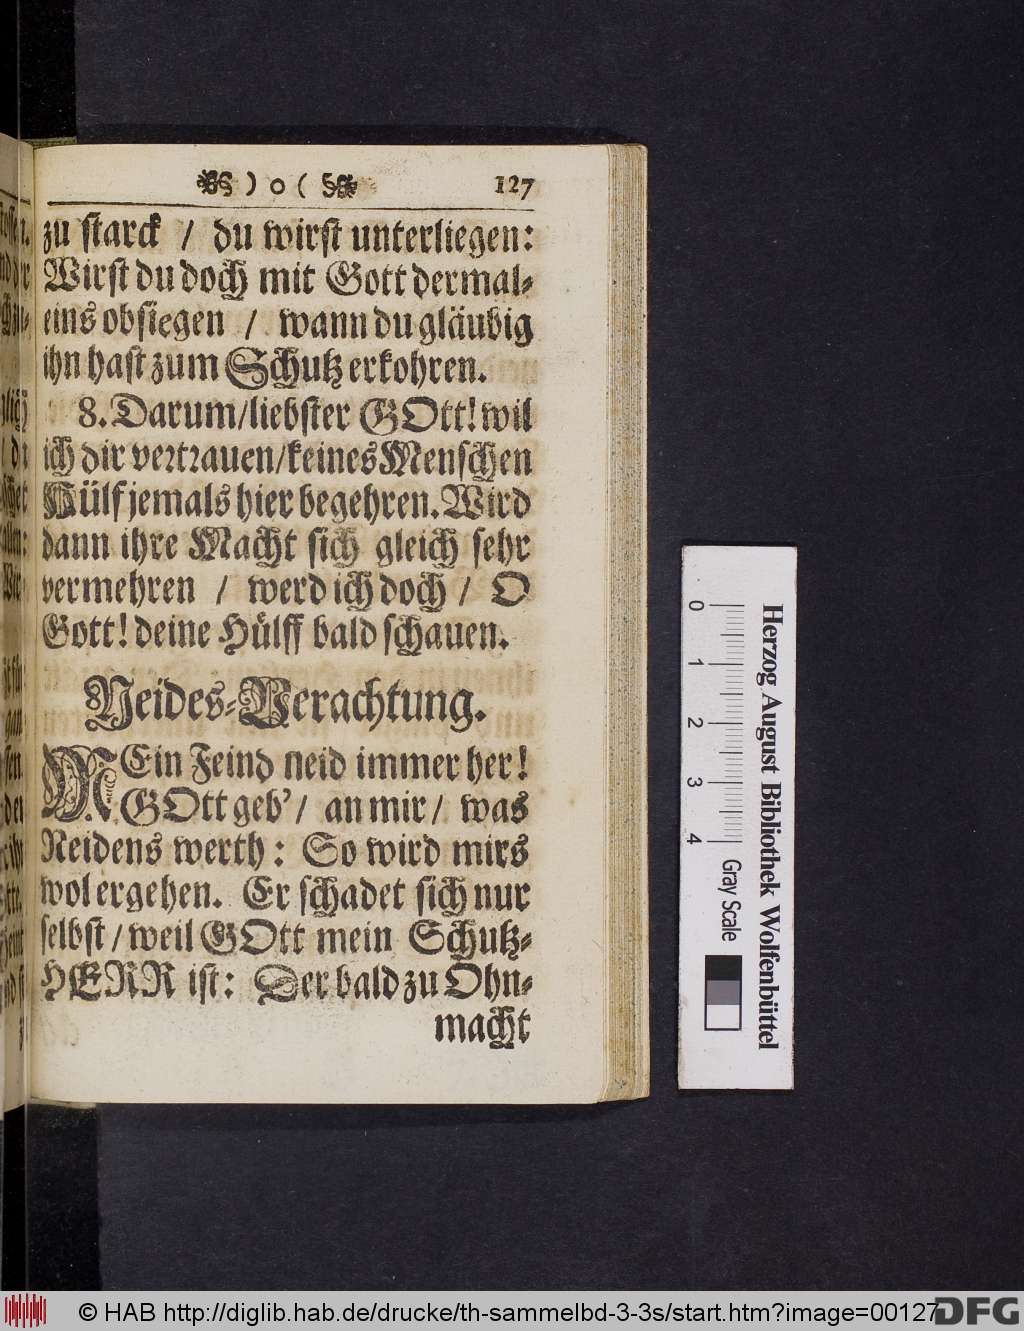 ) o ( 127
zu starck / du wirst unterliegen:
Wirst du doch mit Gott dermal-
eins obsiegen / wann du gläubig
ihn hast zum Schutz erkohren.
8. Darum/liebster GOtt! wil
ich dir vertrauen/keines Menschen
Hülf jemals hier begehren. Wird
dann ihre Macht sich gleich sehr
vermehren / werd ich doch / O
Gott! deine Hülff bald schauen.
Neides-Verachtung.
MEin Feind neid immer her!
GOtt geb' / an mir / was
Neidens werth: So wird mirs
wol ergehen. Er schadet sich nur
selbst / weil GOtt mein Schutz-
HERR ist: Der bald zu Ohn-
macht
0 1 2 3 4
Gray Scale
Herzog August Bibliothek Wolfenbüttel
© HAB http://diglib.hab.de/drucke/th-sammelbd-3-3s/start.htm?image=00127
DFG